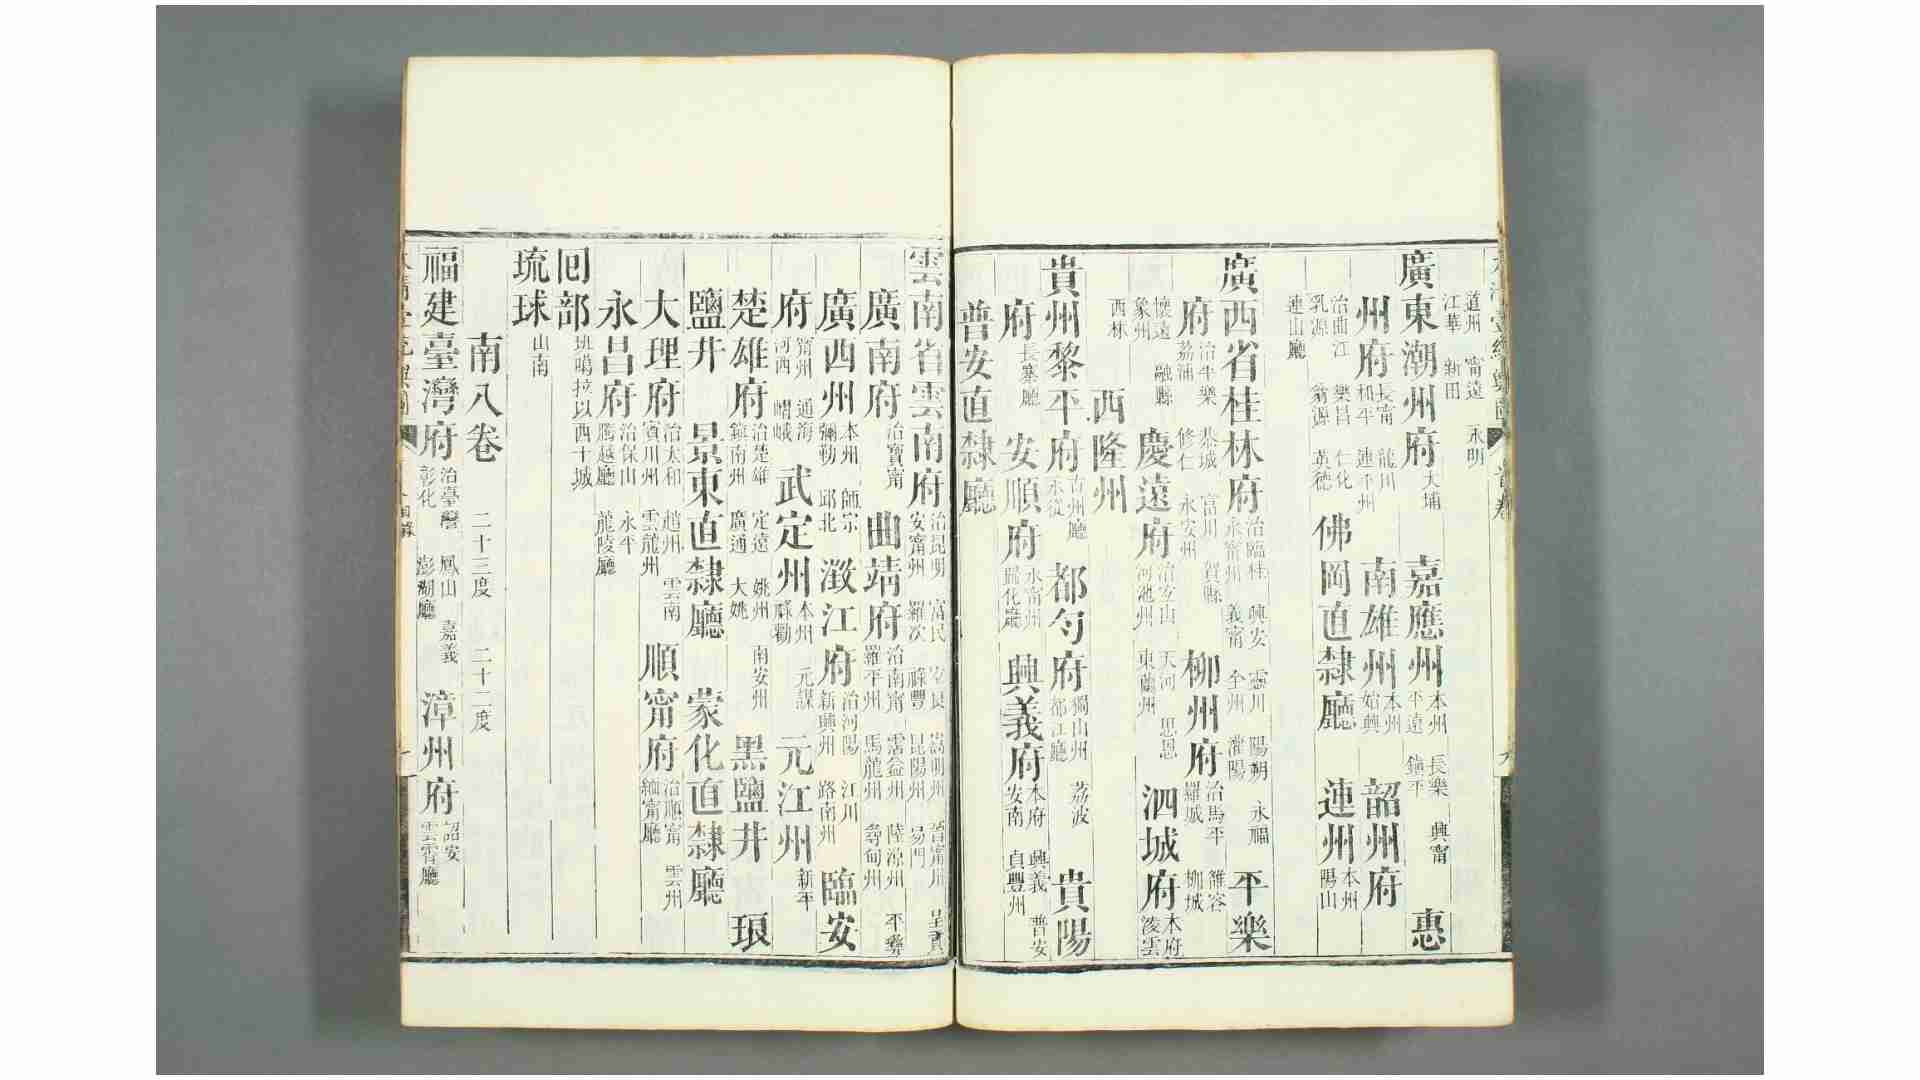 大清壹統輿圖 首卷 九
道州 甯遠 永明 江華 新田
廣東潮州府 大埔 嘉應州 本州 長樂 興甯 平遠 鎮平 惠
州府 長甯 龍川 和平 連平州 南雄州 本州 始興 韶州府
治曲江 樂昌 仁化 乳源 翁源 英德 佛岡直隸廳 連州 本州 陽山
連山廳
廣西省桂林府 治臨桂 興安 靈川 陽朔 永福 永甯州 義甯 全州 灌陽 平樂
府 治平樂 恭城 富川 賀縣 荔浦 修仁 永安州 柳州府 治馬平 雒容 羅城 柳城
懷遠 融縣 象州 慶遠府 治宜山 天河 思恩 河池州 東蘭州 泗城府 本府 凌雲
西林 西隆州
貴州黎平府 古州廳 永從 都勻府 獨山州 荔波 都江廳 貴陽
府 長寨廳 安順府 永甯州 歸化廳 興義府 本府 興義 普安 安南 貞豐州
普安直隸廳
雲南省雲南府 治昆明 富民 宜良 嵩明州 晉甯州 呈貢 安甯州 羅次 祿豐 昆陽州 易門
廣南府 治寶甯 曲靖府 治南甯 霑益州 陸涼州 平彝 羅平州 馬龍州 尋甸州
廣西州 本州 師宗 彌勒 邱北 澂江府 治河陽 江川 新興州 路南州 臨安
府 甯州 通海 河西 嶍峨 武定州 本州 元謀 祿勸 元江州 新平
楚雄府 治楚雄 定遠 姚州 南安州 鎮南州 廣通 大姚 黑鹽井 琅
鹽井 景東直隸廳 蒙化直隸廳
大理府 治太和 趙州 雲南 賓川州 雲龍州 順甯府 治順甯 雲州 緬甯廳
永昌府 治保山 永平 騰越廳 龍陵廳
回部 班噶拉以西十城
琉球 山南
南八卷 二十三度 二十二度
福建臺灣府 治臺灣 鳳山 嘉義 彰化 澎湖廳 漳州府 詔安 雲霄廳
大清壹統輿圖